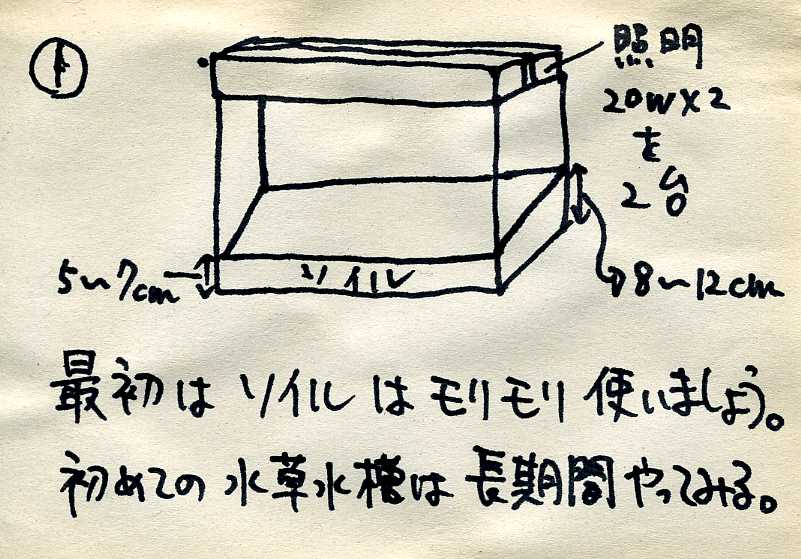 照明
20W×2
を
2台
5〜7cm
ソイル
8〜12cm
最初はソイルはモリモリ使いましょう。
初めての水草水槽は長期間やってみる。